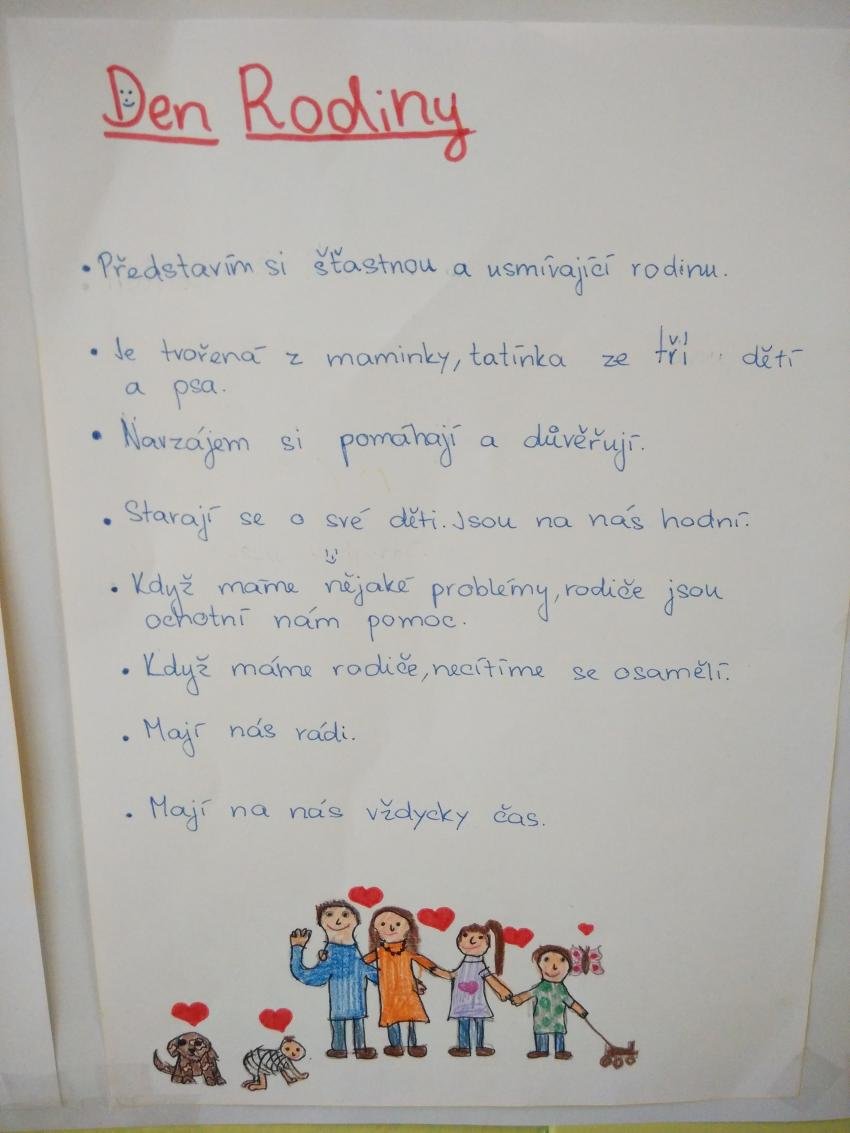 Den Rodiny
• Představím si šťastnou a usmívající rodinu.
• Je tvořená z maminky, tatínka ze tří dětí
a psa.
• Navzájem si pomáhají a důvěřují.
• Starají se o své děti. Jsou na nás hodní.
• Když máme nějaké problémy, rodiče jsou
ochotní nám pomoc.
• Když máme rodiče, necítíme se osamělí.
• Mají nás rádi.
• Mají na nás vždycky čas.